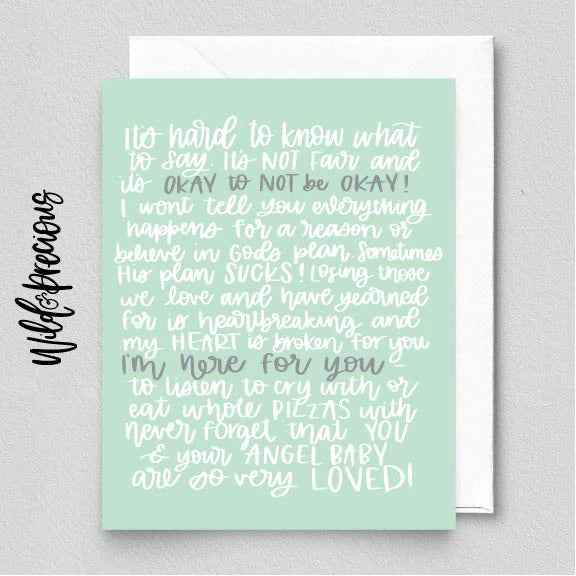 Wild & Precious
It's hard to know what
to say. It's NOT Fair and
it's OKAY to NOT be OKAY!
I wont tell you everything
happens for a reason or
believe in Gods plan. Sometimes
His plan SUCKS! Losing those
we love and have yearned
for is heartbreaking and
my HEART is broken for you
I'm here for you -
to listen to cry with or
eat whole PIZZAS with
never forget that YOU
& your ANGEL BABY
are so very LOVED!